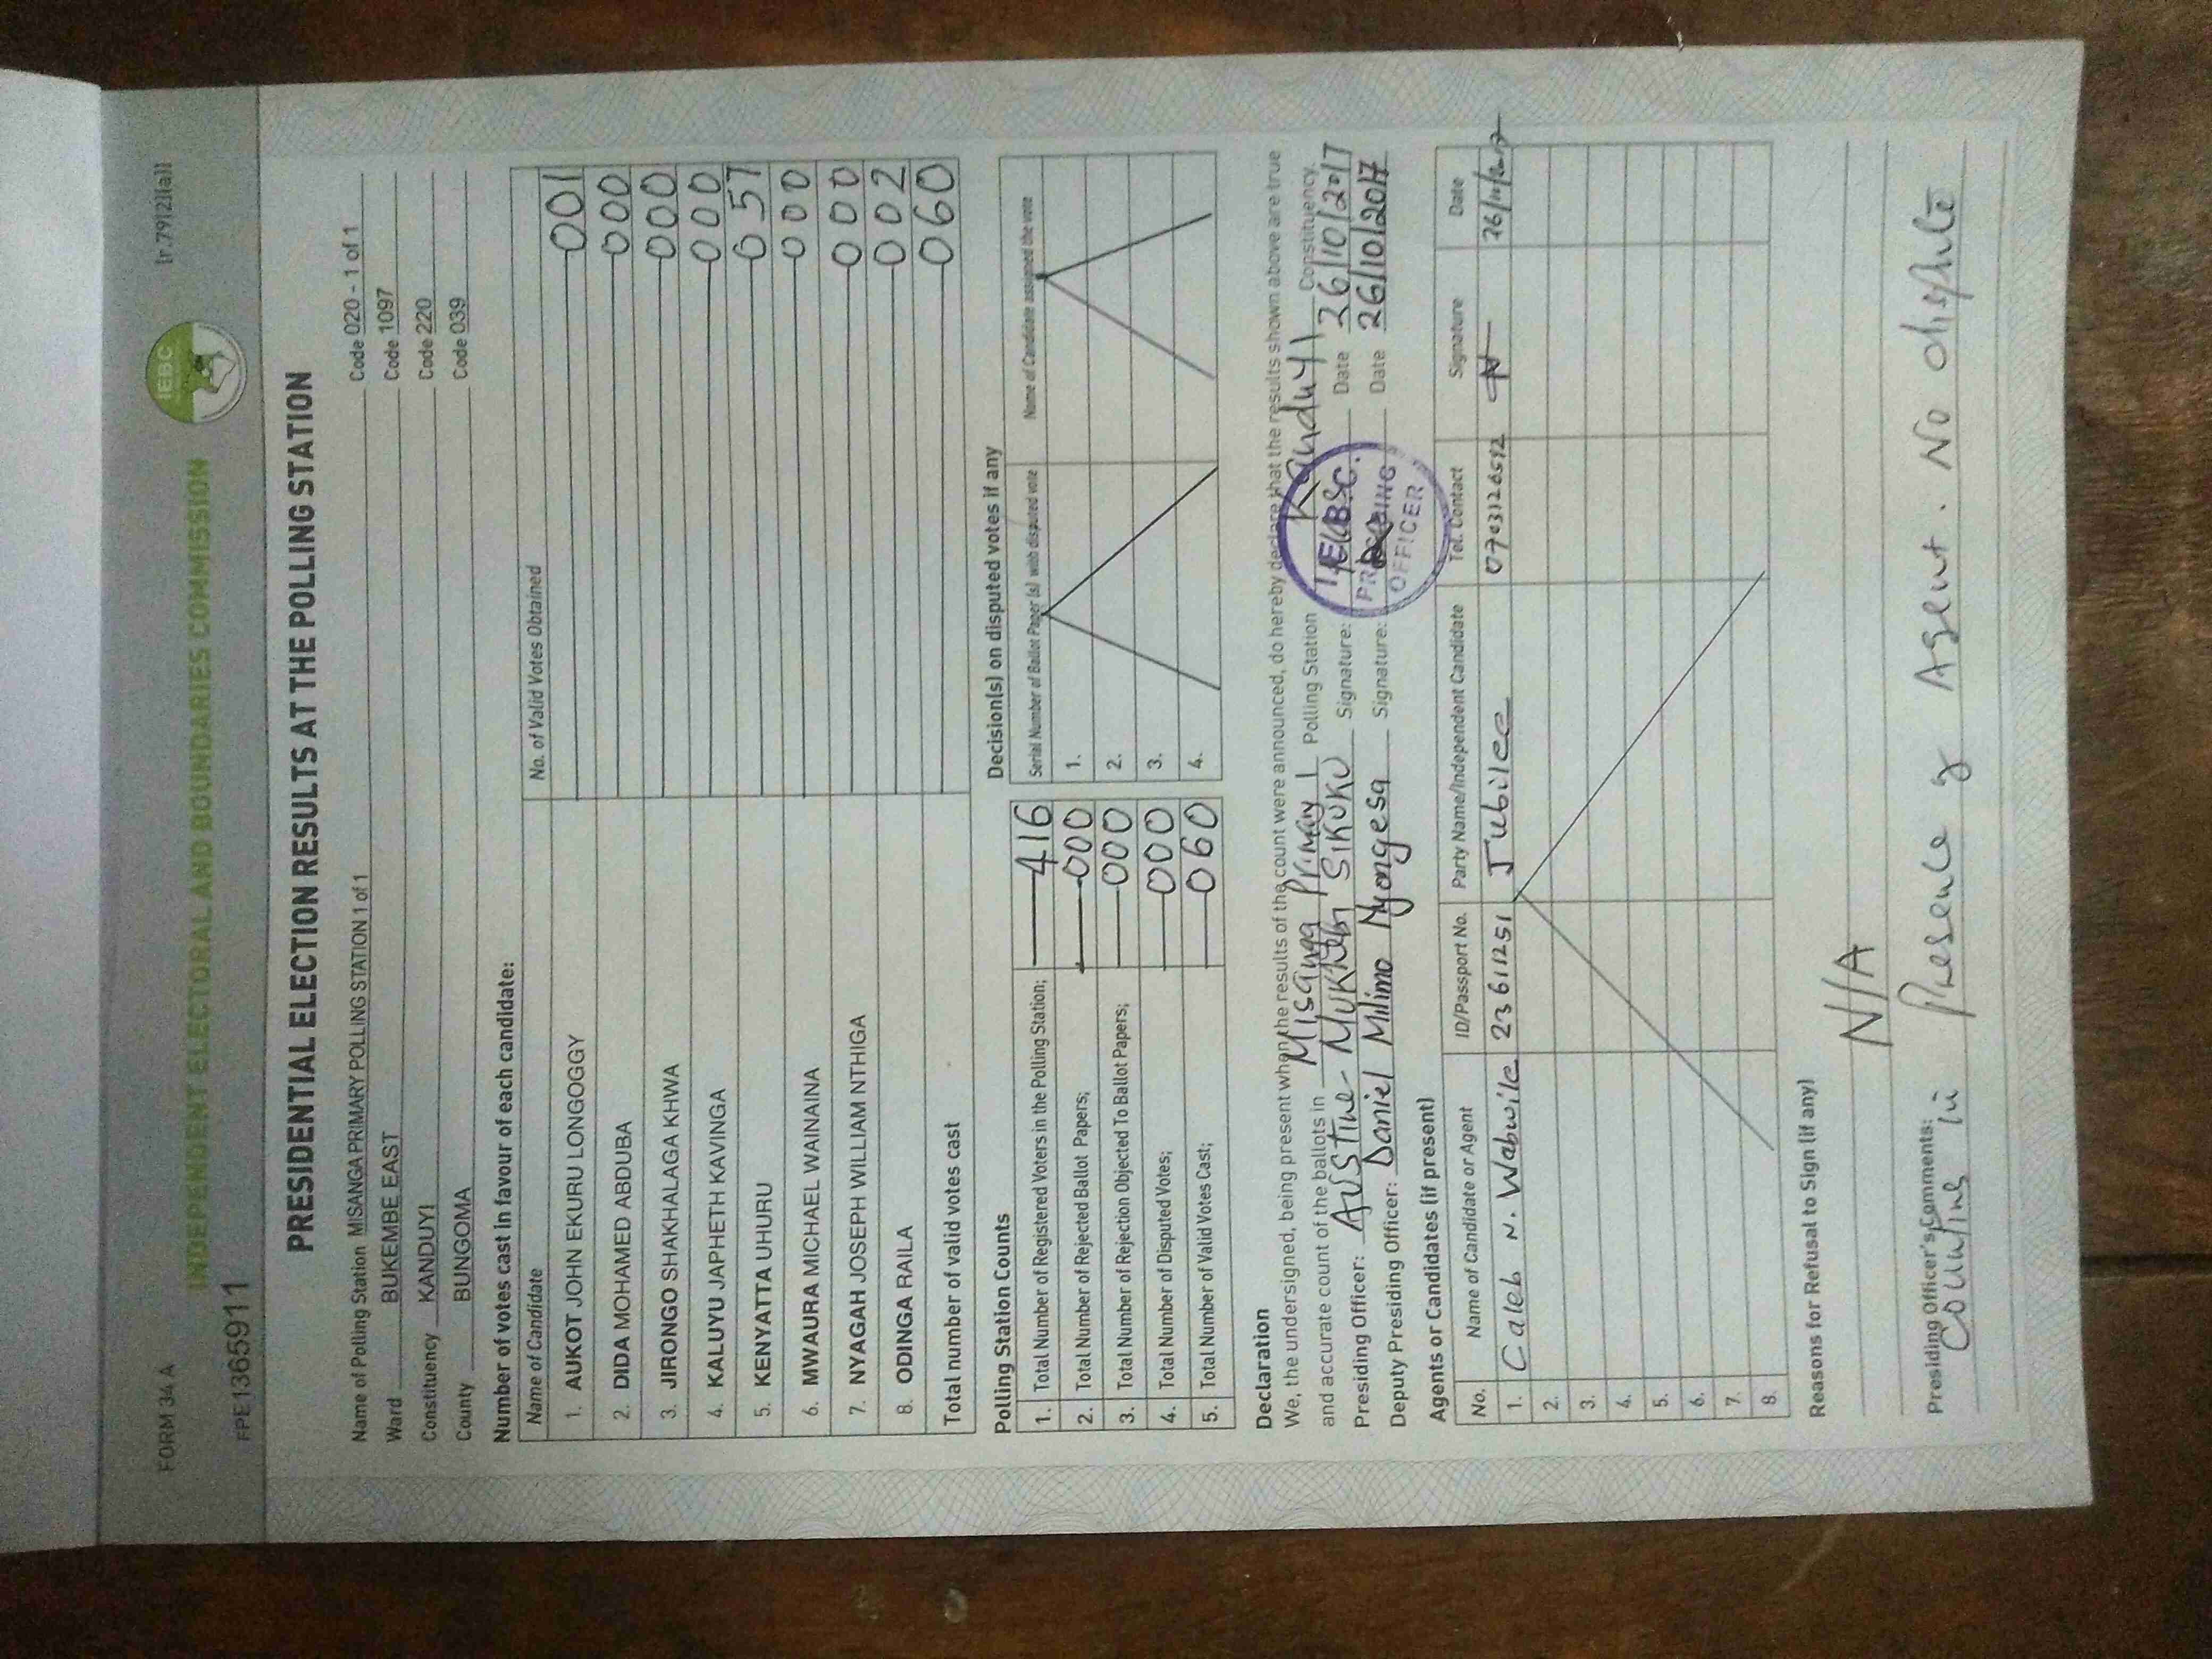 FORM 34 A
[r.79(2)(a)]
INDEPENDENT ELECTORAL AND BOUNDARIES COMMISSION
IEBC
FPE1365911
PRESIDENTIAL ELECTION RESULTS AT THE POLLING STATION
Name of Polling Station MISANGA PRIMARY POLLING STATION 1 of 1 Code 020 - 1 of 1
Ward BUKEMBE EAST Code 1097
Constituency KANDUYI Code 220
County BUNGOMA Code 039
Number of votes cast in favour of each candidate:
Name of Candidate No. of Valid Votes Obtained
1. AUKOT JOHN EKURU LONGOGGY 001
2. DIDA MOHAMED ABDUBA 000
3. JIRONGO SHAKHALAGA KHWA 000
4. KALUYU JAPHETH KAVINGA 000
5. KENYATTA UHURU 057
6. MWAURA MICHAEL WAINAINA 000
7. NYAGAH JOSEPH WILLIAM NTHIGA 000
8. ODINGA RAILA 002
Total number of valid votes cast 060
Polling Station Counts
1. Total Number of Registered Voters in the Polling Station; 416
2. Total Number of Rejected Ballot Papers; 000
3. Total Number of Rejection Objected To Ballot Papers; 000
4. Total Number of Disputed Votes; 000
5. Total Number of Valid Votes Cast; 060
Decision(s) on disputed votes if any
Serial Number of Ballot Paper (s) with disputed vote Name of Candidate assigned the vote
1.
2.
3.
4.
Declaration
We, the undersigned, being present when the results of the count were announced, do hereby declare that the results shown above are true
and accurate count of the ballots in Misanga Primary 1 Polling Station Kanduyi Constituency.
Presiding Officer: AUSTINE SIKUKU Signature: Date 26/10/2017
Deputy Presiding Officer: Daniel Milimo Nyongesa Signature: Date 26/10/2017
I.E.B.C.
PRESIDING
OFFICER
Agents or Candidates (if present)
No. Name of Candidate or Agent ID/Passport No. Party Name/Independent Candidate Tel. Contact Signature Date
1. Caleb N. Wabwile 23611251 Jubilee 0703126512 26/10/2017
2.
3.
4.
5.
6.
7.
8.
Reasons for Refusal to Sign (if any)
N/A
Presiding Officer's Comments:
Counting in Presence of Agent. No dispute